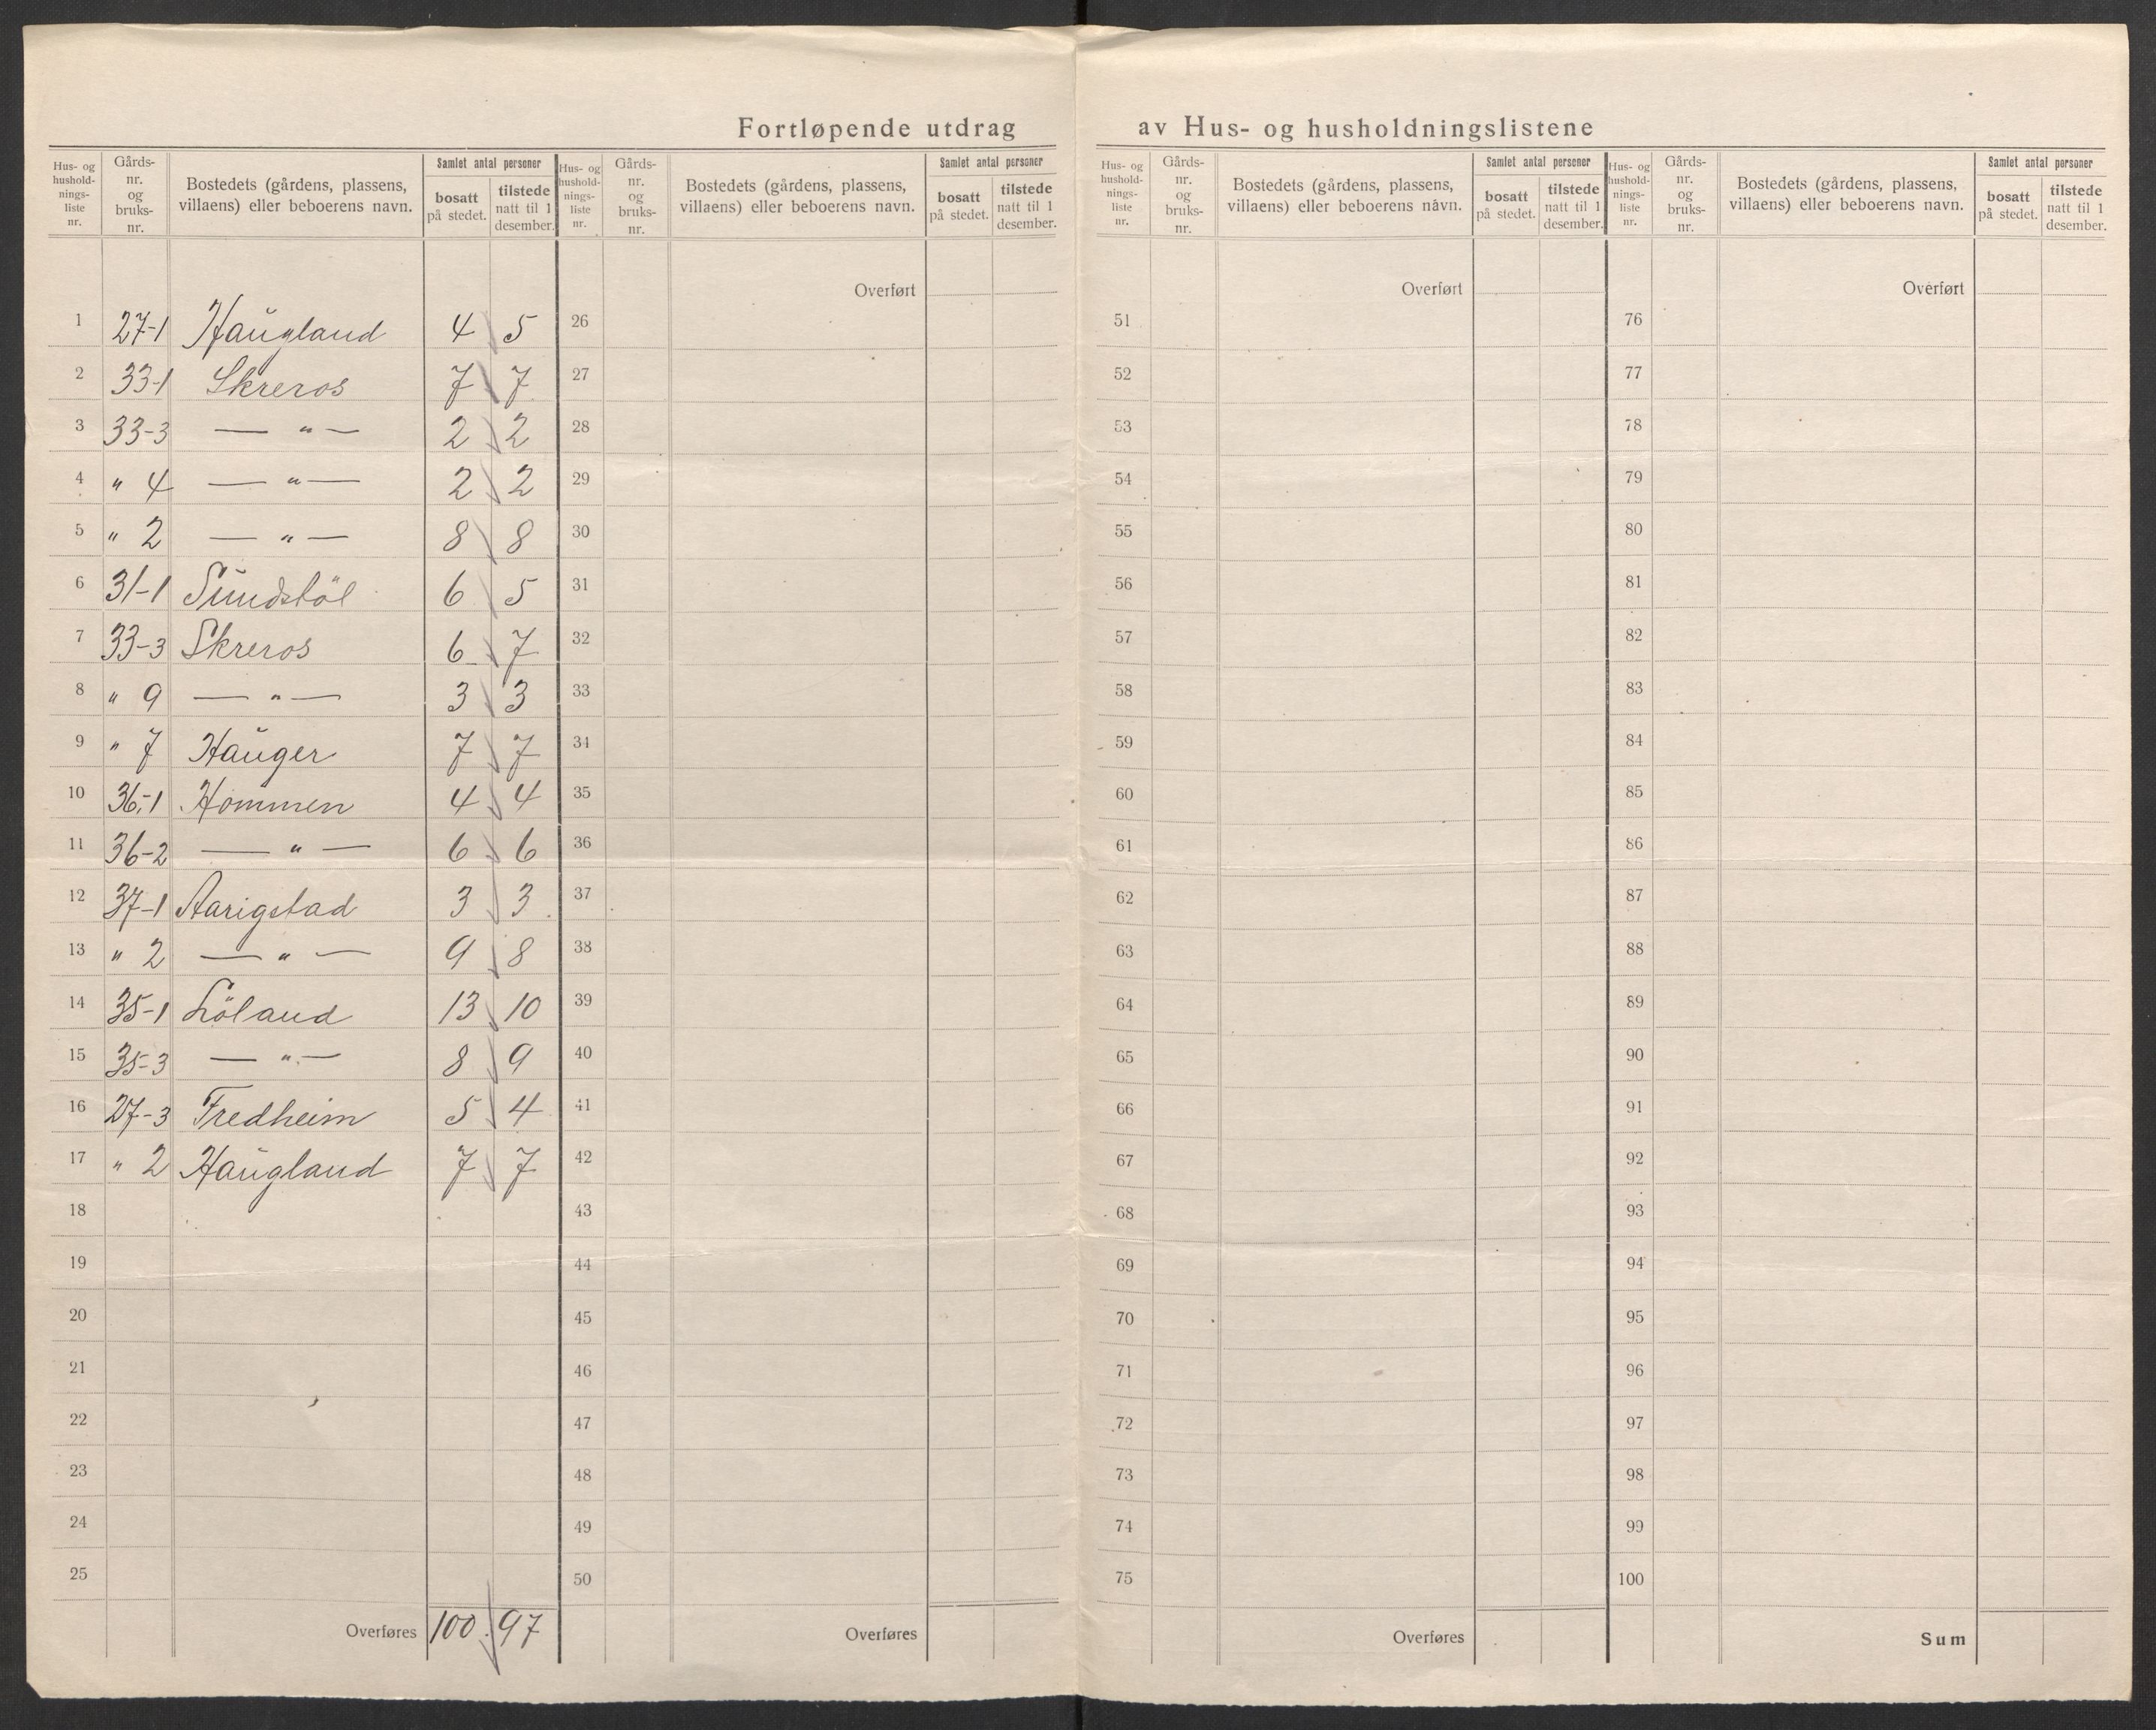 Fortløpende utdrag av Hus- og husholdningslistene
Hus- og husholdnings-liste nr. | Gårds-nr. og bruks-nr. | Bostedets (gårdens, plassens, villaens) eller beboerens navn. | Samlet antal personer bosatt på stedet. | tilstede natt til 1 desember.
1 27-1 Haugland 4 5
2 33-1 Skreros 7 7
3 33-3 — " — 2 2
4 " 4 — " — 2 2
5 " 2 — " — 8 8
6 31-1 Sundstöl 6 5
7 33-3 Skreros 6 7
8 " 9 — " — 3 3
9 " 7 Hauger 7 7
10 36-1 Hommen 4 4
11 36-2 — " — 6 6
12 37-1 Aarigstad 3 3
13 " 2 — " — 9 8
14 35-1 Löland 13 10
15 35-3 — " — 8 9
16 27-3 Fredheim 5 4
17 " 2 Haugland 7 7
18
19
20
21
22
23
24
25
Overføres 100 97
Hus- og husholdnings-liste nr. | Gårds-nr. og bruks-nr. | Bostedets (gårdens, plassens, villaens) eller beboerens navn. | Samlet antal personer bosatt på stedet. | tilstede natt til 1 desember.
Overført
26
27
28
29
30
31
32
33
34
35
36
37
38
39
40
41
42
43
44
45
46
47
48
49
50
Overføres
Hus- og husholdnings-liste nr. | Gårds-nr. og bruks-nr. | Bostedets (gårdens, plassens, villaens) eller beboerens navn. | Samlet antal personer bosatt på stedet. | tilstede natt til 1 desember.
Overført
51
52
53
54
55
56
57
58
59
60
61
62
63
64
65
66
67
68
69
70
71
72
73
74
75
Overføres
Hus- og husholdnings-liste nr. | Gårds-nr. og bruks-nr. | Bostedets (gårdens, plassens, villaens) eller beboerens navn. | Samlet antal personer bosatt på stedet. | tilstede natt til 1 desember.
Overført
76
77
78
79
80
81
82
83
84
85
86
87
88
89
90
91
92
93
94
95
96
97
98
99
100
Sum